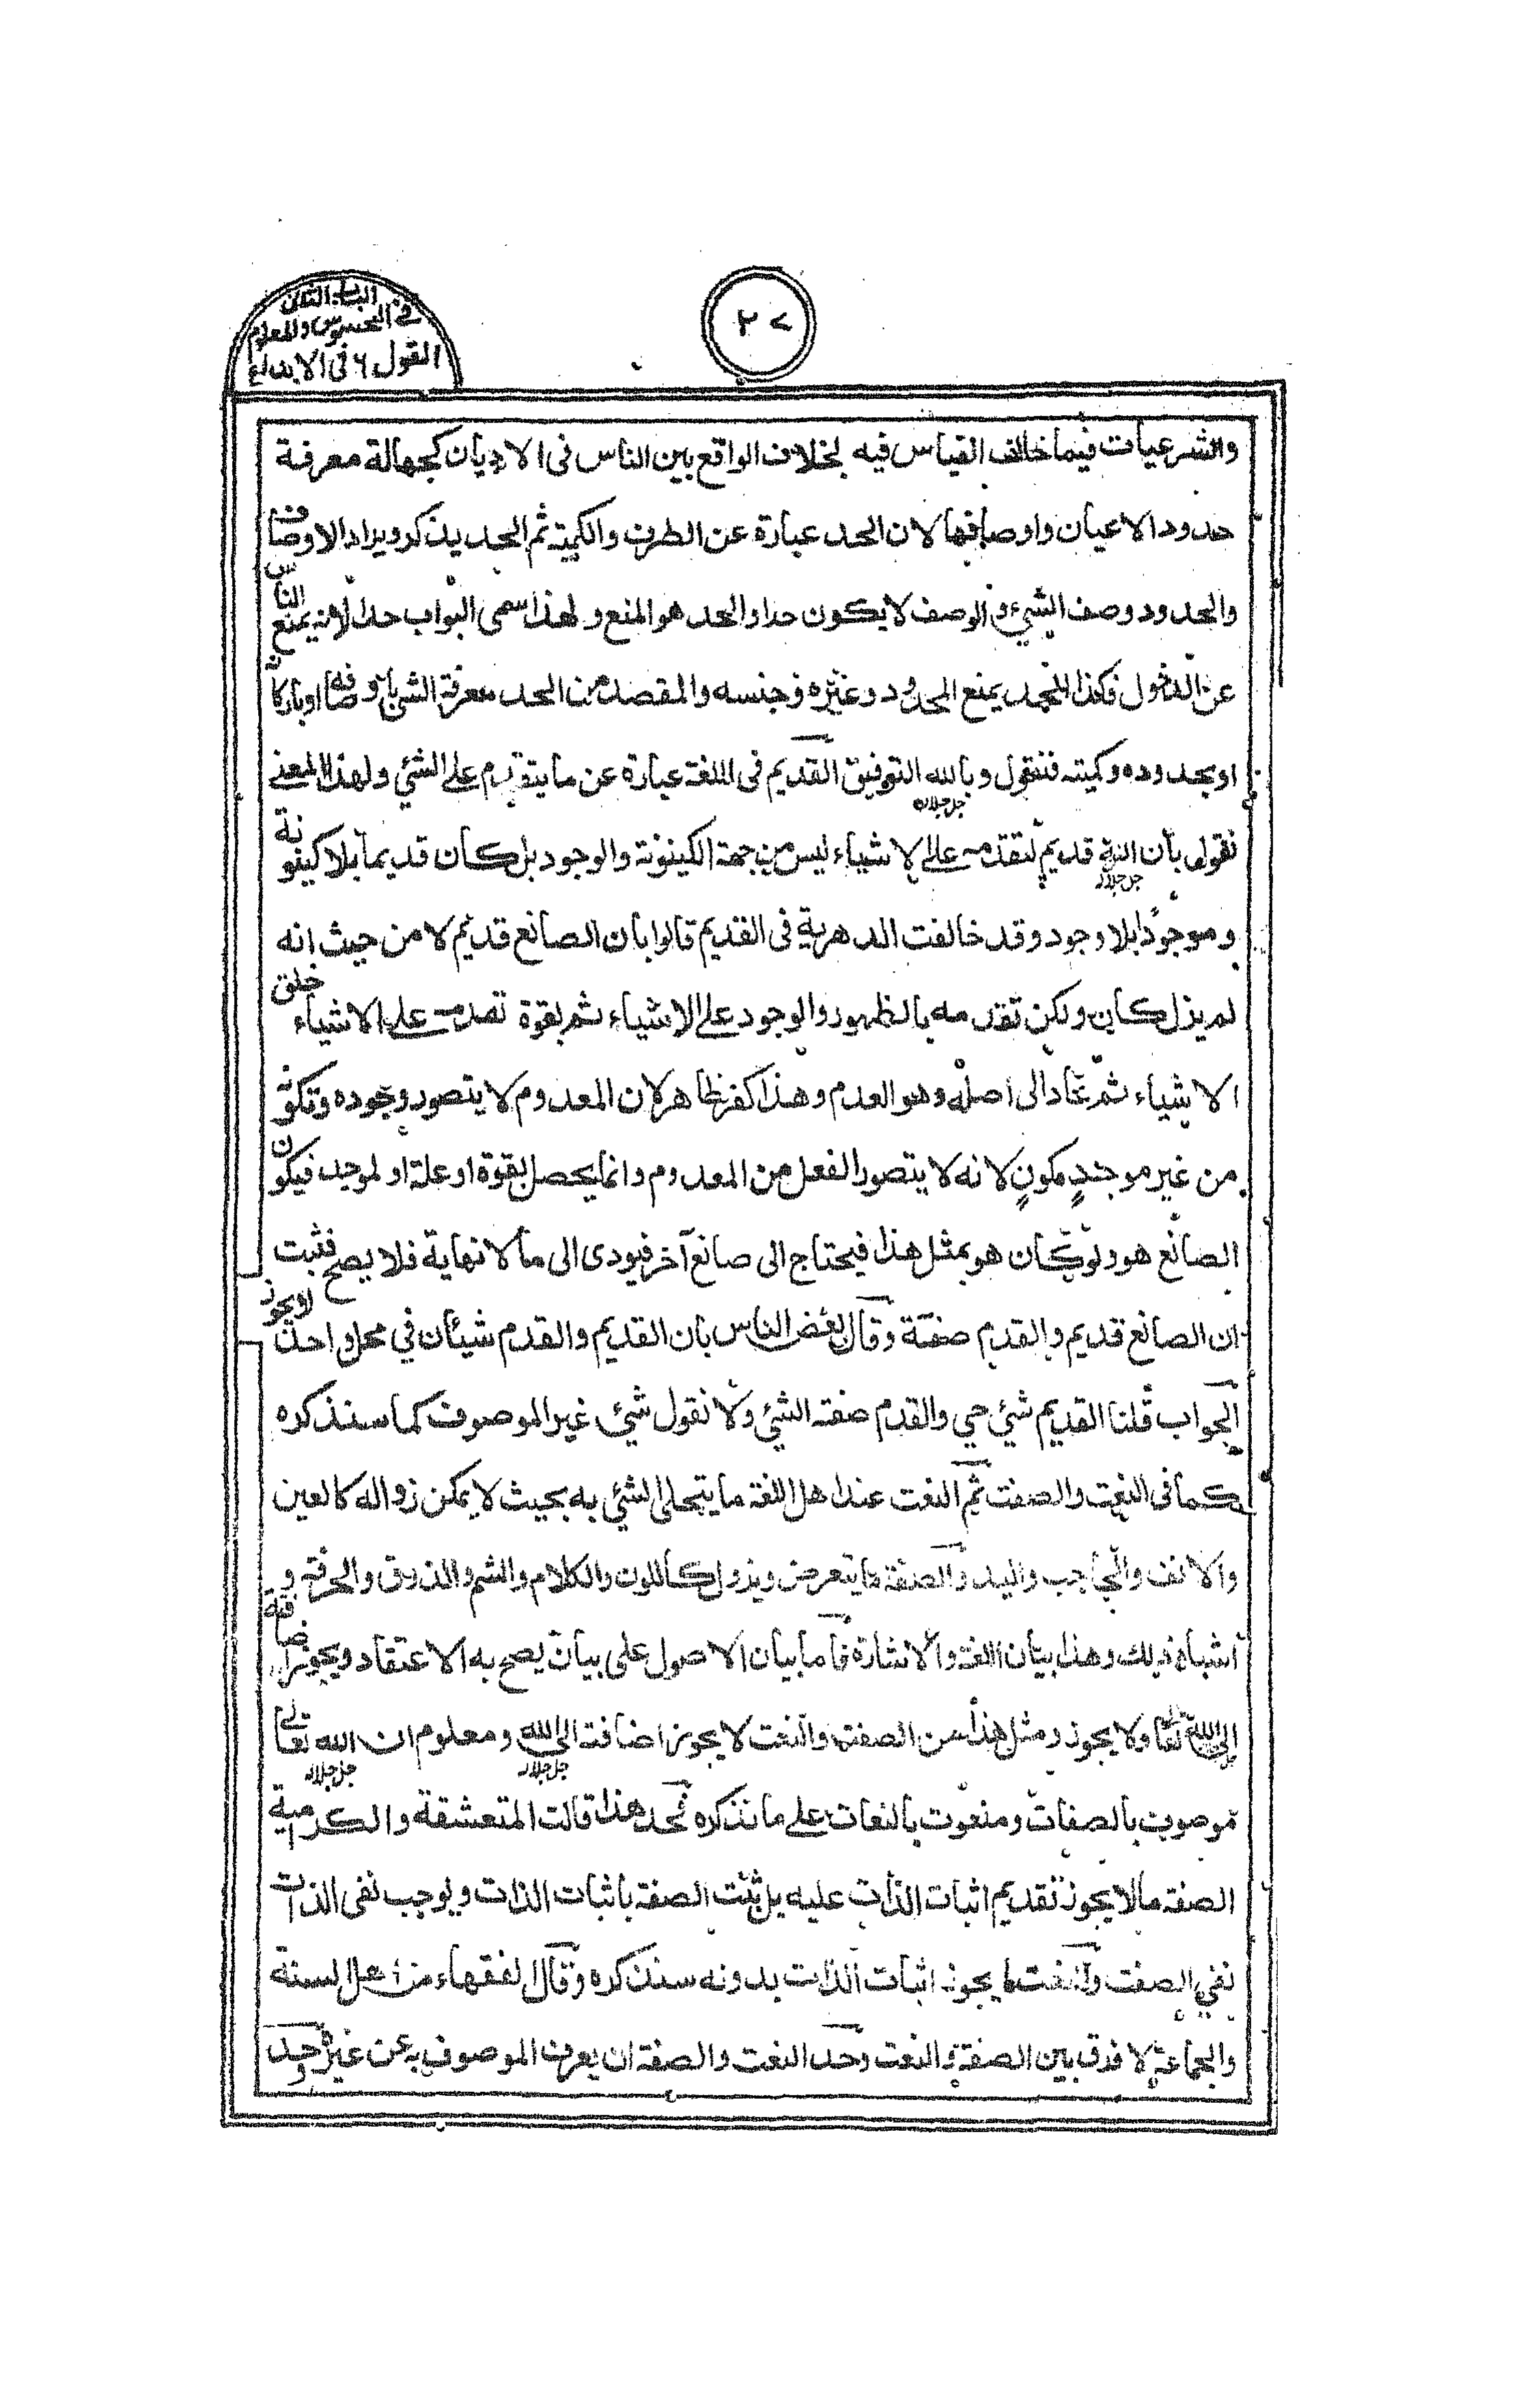 ٢٧
الباب الثانى
فى المحسوس والمعلوم
القول ٦ فى الابتداء
والشرعيات فيما خالف القياس فيه لخلاف الواقع بين الناس فى الاديان كجهالة معرفة
حدود الاعيان واوصافها لان الحد عبارة عن الطرف والكمية ثم الحد يذكر ويراد الاوصاف
والحدود وصف الشيء والوصف لا يكون حدا والحد هو المنع ولهذا سمى البواب حدا لانه يمنع الناس
عن الدخول فكذا الحد يمنع المحدود وغيره وجنسه والمقصد من الحد معرفة الشئ باوصافه او باركانه
او بحدوده وكميته فنقول وبالله التوفيق القديم فى اللغة عبارة عن ما يتقدم على الشئ ولهذا المعنے
نقول بان الله جل جلاله قديم لتقدمه على الاشياء ليس من جهة الكينونة والوجود بل كان قديما بلا كينونة
وموجودا بلا وجود وقد خالفت الدهرية فى القديم قالوا بان الصانع قديم لا من حيث انه
لم يزل كان ولكن تقدمه بالظهور والوجود على الاشياء ثم بقوة تقدمه على الاشياء خلق
الا شياء ثم عاد الى اصله وهو العدم وهذا كفر ظاهر لان المعدوم لا يتصور وجوده وتكونه
من غير موجدٍ مكونٍ لانه لا يتصور الفعل من المعدوم وانما يحصل بقوة او علة او لموجد فيكون
الصانع هو ولو كان هو بمثل هذا فيحتاج الى صانع آخر فيودى الى ما لا نهاية فلا يصح فثبت
ان الصانع قديم والقدم صفته وقال بعض الناس بان القديم والقدم شيئان في محل واحد لا يجوز
الجواب قلنا القديم شئ حي والقدم صفة الشئ ولا نقول شئ غير الموصوف كما سنذكره
كما فى النعت والصفت ثم النعت عند اهل اللغة ما يتحلى الشئ به بحيث لا يمكن زواله كالعين
والانف والحاجب واليد والصفة ما يتعرض ويزول كاللون والكلام والشم والذوق والحرفة و
اشباه ذلك وهذا بيان اللغة والاشارة فاما بيان الاصول على بيان يصح به الاعتقاد ويجوز اضافته
الى الله تعالى ولا يجوز مثل هذا من الصفة والنعت لا يجوز اضافته الى الله جل جلاله ومعلوم ان الله تعالى جل جلاله
موصوف بالصفات ومنعوت بالنعات على ما نذكره بحد هذا قالت المتعشقة والكرامية
الصفة ما لا يجوز تقديم اثبات الذات عليه بل يثبت الصفة باثبات الذات ويوجب نفى الذات
نفي الصفت والنعت ما يجوز اثبات الذات بدونه سنذكره وقال الفقهاء من اهل السنة
والجماعة لا فرق بين الصفة والنعت وحد النعت والصفة ان يعرف الموصوف به عن غيره وحد